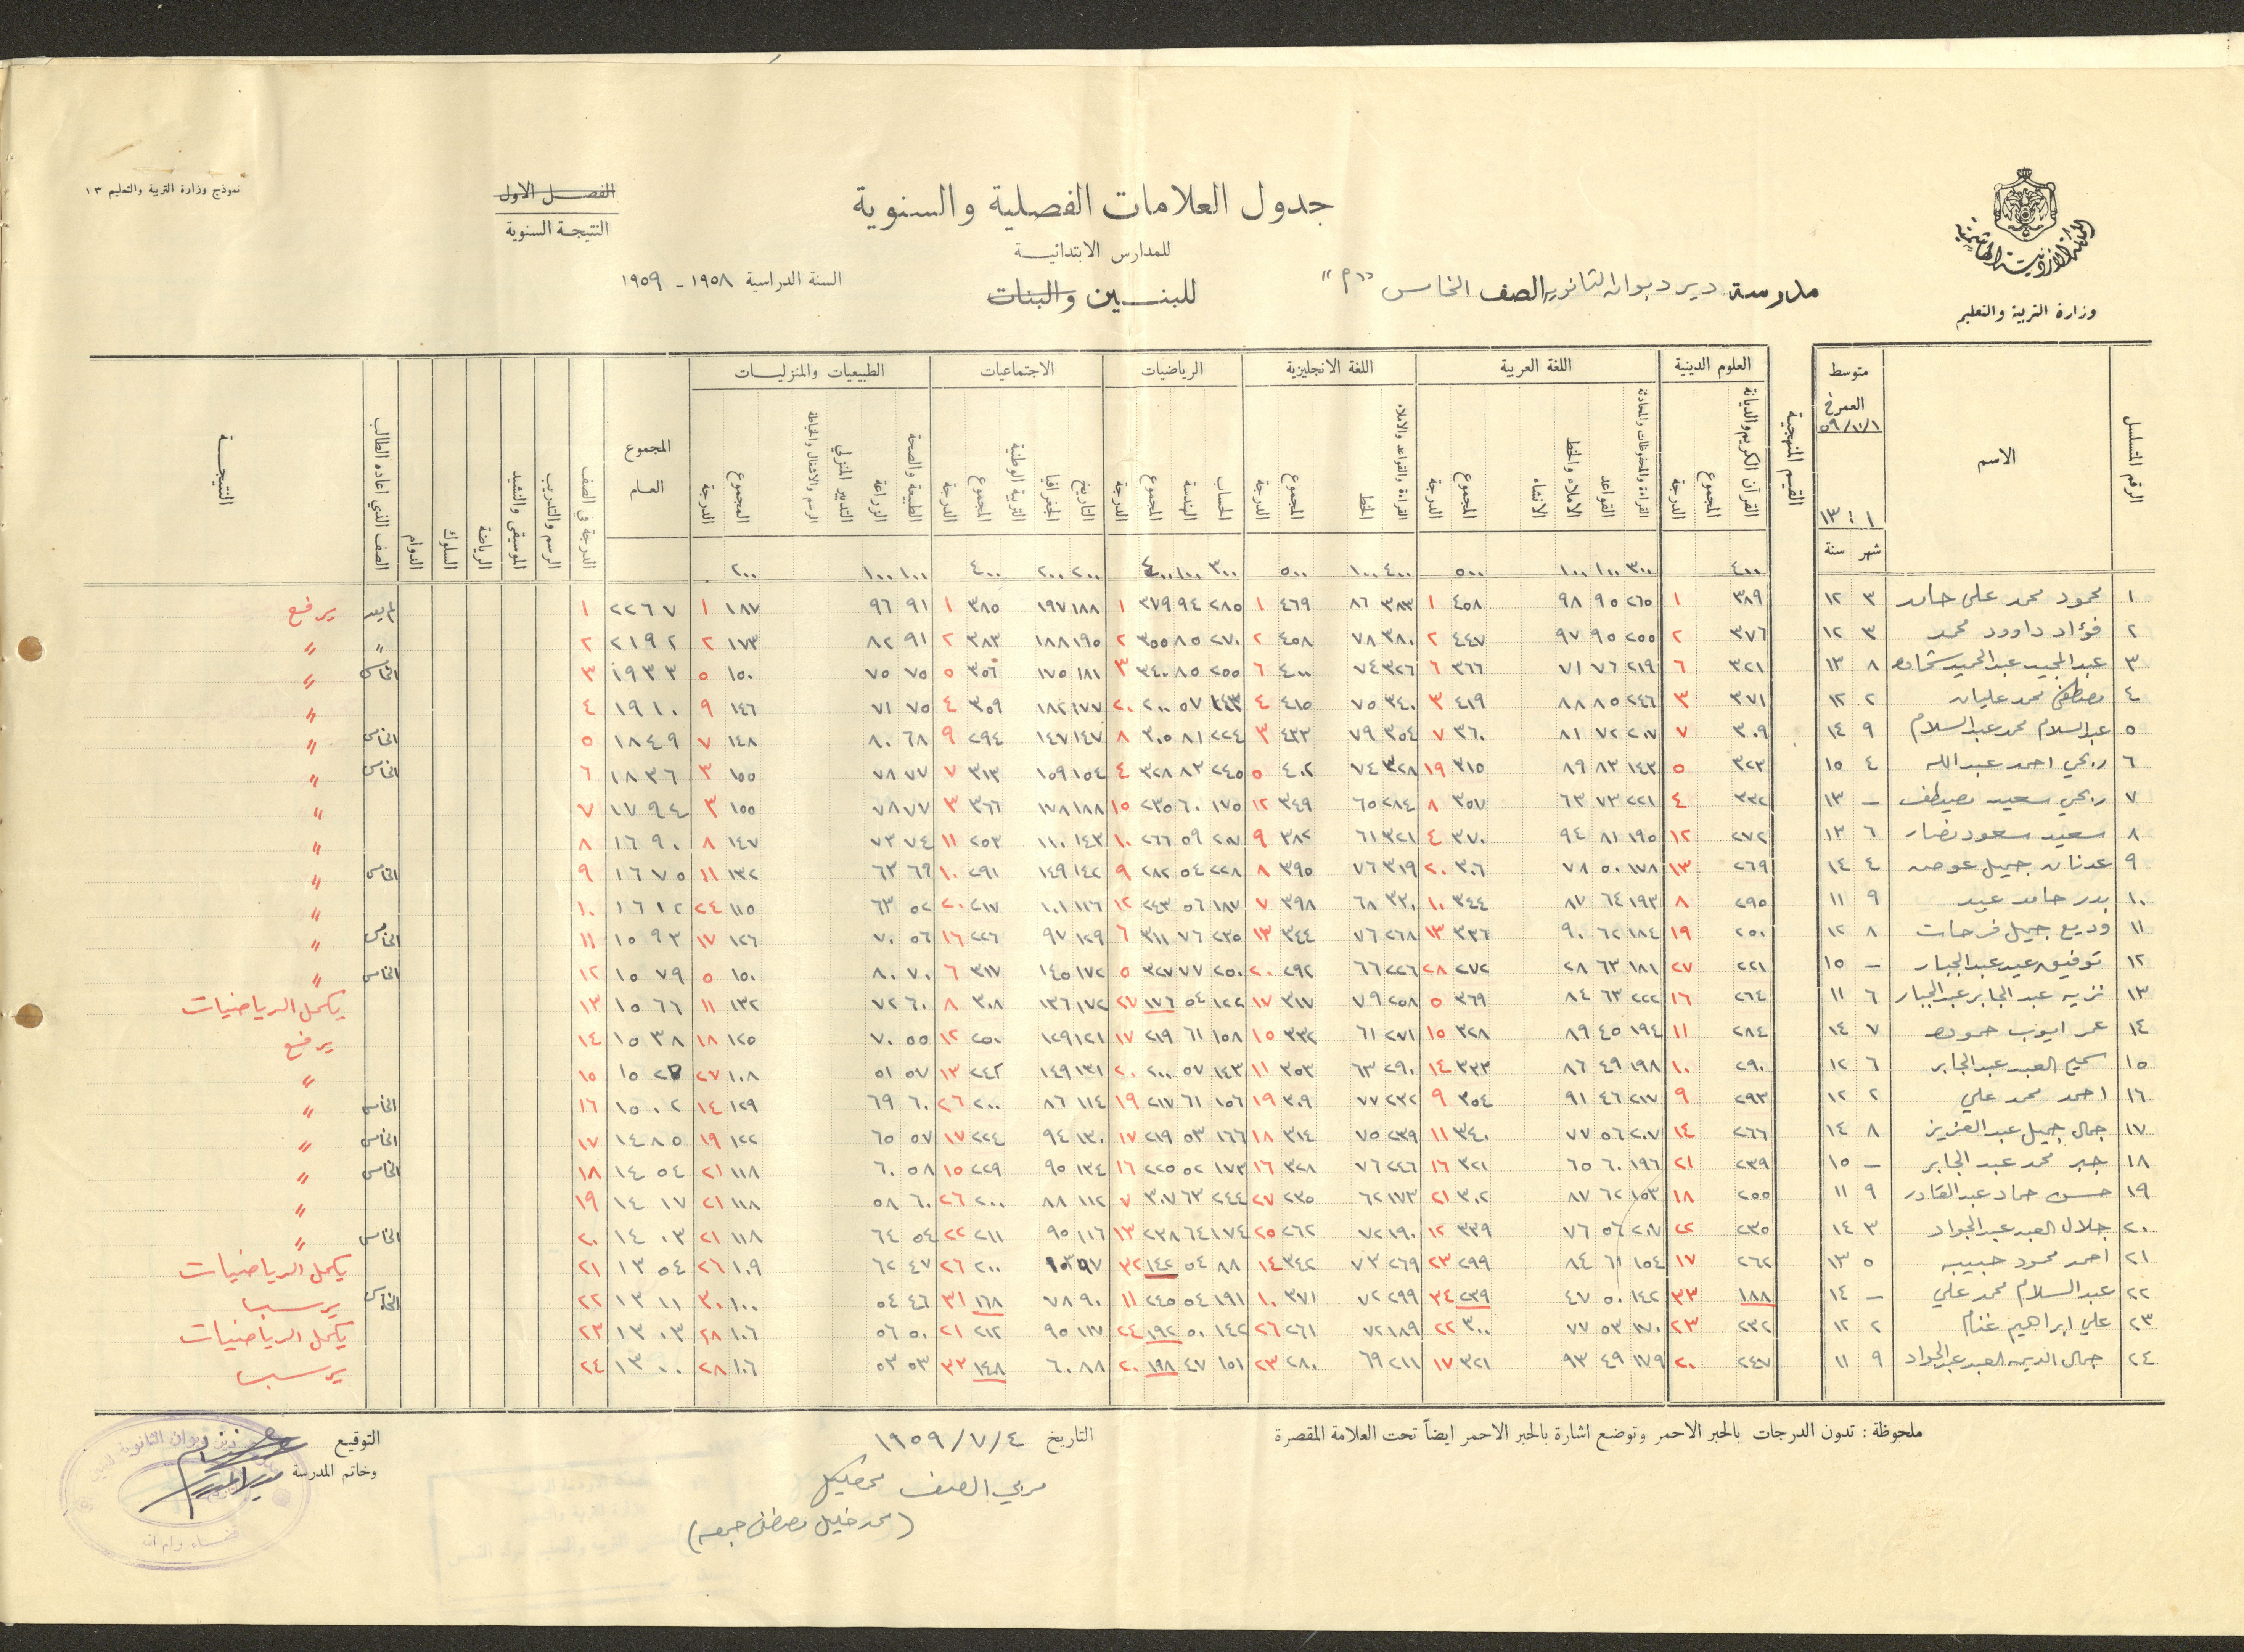 نموذج وزارة التربية والتعليم ١٣
المملكة الاردنية الهاشمية
وزارة التربية والتعليم
جدول العلامات الفصلية والسنوية
للمدارس الابتدائيـــة
للبنـــين والبنات
الفصـــل الاول
النتيجـة السنوية
السنة الدراسية ١٩٥٨ - ١٩٥٩
مدرسة دير دبوان الثانوية الصف الخامس "م"
الرقم المتسلسل
الاسم
متوسط العمر في ٥٩/١٠/١
١ : ١٣
شهر سنة
القيم المنهجية
العلوم الدينية
القرآن الكريم والديانة المجموع الدرجة
اللغة العربية
القراءة والمحفوظات والمحادثة القواعد الاملاء والخط الانشاء المجموع الدرجة
اللغة الانجليزية
القراءة والقواعد والاملاء الخط المجموع الدرجة
الرياضيات
الحساب الهندسة المجموع الدرجة
الاجتماعيات
التاريخ الجغرافيا التربية الوطنية المجموع الدرجة
الطبيعيات والمنزليـــات
الطبيعة والصحة الزراعة التدبير المنزلي الرسم والاشغال والخياطة المجموع الدرجة
المجموع العام
الدرجة في الصف
الرسم والتدريب
الموسيقى والنشيد
الرياضة
السلوك
الدوام
الصف الذي اعاده الطالب
النتيجـــة
٤٠٠ ٣٠٠ ١٠٠ ١٠٠ ٥٠٠ ٤٠٠ ١٠٠ ٥٠٠ ٣٠٠ ١٠٠ ٤٠٠ ٢٠٠ ٢٠٠ ٤٠٠ ١٠٠ ١٠٠ ٢٠٠
١ محمود محمد علي حامد ٣ ١٢ ٣٨٩ ١ ٢٦٥ ٩٥ ٩٨ ٤٥٨ ١ ٣٨٣ ٨٦ ٤٦٩ ١ ٢٨٥ ٩٤ ٣٧٩ ١ ١٨٨ ١٩٧ ٣٨٥ ١ ٩١ ٩٦ ١٨٧ ١ ٢٢٦٧ ١ لم يعد يرفع
٢ فؤاد داوود محمد ٣ ١٢ ٣٧٦ ٢ ٢٥٥ ٩٥ ٩٧ ٤٤٧ ٢ ٣٨٠ ٧٨ ٤٥٨ ٢ ٢٧٠ ٨٥ ٣٥٥ ٢ ١٩٥ ١٨٨ ٣٨٣ ٢ ٩١ ٨٢ ١٧٣ ٢ ٢١٩٢ ٢ " "
٣ عبدالمجيد عبدالحميد شحاده ٨ ١٣ ٣٢١ ٦ ٢١٩ ٧٦ ٧١ ٣٦٦ ٦ ٣٢٦ ٧٤ ٤٠٠ ٦ ٢٥٥ ٨٥ ٣٤٠ ٣ ١٨١ ١٧٥ ٣٥٦ ٥ ٧٥ ٧٥ ١٥٠ ٥ ١٩٣٣ ٣ الخامس "
٤ مصطفى محمد عليان ٢ ١٢ ٣٧١ ٣ ٢٤٦ ٨٥ ٨٨ ٤١٩ ٣ ٣٤٠ ٧٥ ٤١٥ ٤ ١٤٣ ٥٧ ٢٠٠ ٢٠ ١٧٧ ١٨٢ ٣٥٩ ٤ ٧٥ ٧١ ١٤٦ ٩ ١٩١٠ ٤ "
٥ عبدالسلام محمد عبدالسلام ٩ ١٤ ٣٠٩ ٧ ٢٠٧ ٧٢ ٨١ ٣٦٠ ٧ ٣٥٤ ٧٩ ٤٣٣ ٣ ٢٢٤ ٨١ ٣٠٥ ٨ ١٤٧ ١٤٧ ٢٩٤ ٩ ٦٨ ٨٠ ١٤٨ ٧ ١٨٤٩ ٥ الخامس "
٦ ربحي احمد عبدالله ٤ ١٥ ٣٢٣ ٥ ١٤٣ ٨٣ ٨٩ ٣١٥ ١٩ ٣٢٨ ٧٤ ٤٠٢ ٥ ٢٤٥ ٨٣ ٣٢٨ ٤ ١٥٤ ١٥٩ ٣١٣ ٧ ٧٧ ٧٨ ١٥٥ ٣ ١٨٣٦ ٦ الخامس "
٧ ربحي سعيد مصيطف - ١٣ ٣٣٢ ٤ ٢٢١ ٧٣ ٦٣ ٣٥٧ ٨ ٢٨٤ ٦٥ ٣٤٩ ١٢ ١٧٥ ٦٠ ٢٣٥ ١٥ ١٨٨ ١٧٨ ٣٦٦ ٣ ٧٧ ٧٨ ١٥٥ ٣ ١٧٩٤ ٧ "
٨ سعيد سعود نصار ٦ ١٣ ٢٧٢ ١٢ ١٩٥ ٨١ ٩٤ ٣٧٠ ٤ ٣٢١ ٦١ ٣٨٢ ٩ ٢٠٧ ٥٩ ٢٦٦ ١٠ ١٤٣ ١١٠ ٢٥٣ ١١ ٧٤ ٧٣ ١٤٧ ٨ ١٦٩٠ ٨ "
٩ عدنان جميل عوض ٤ ١٤ ٢٦٩ ١٣ ١٧٨ ٥٠ ٧٨ ٣٠٦ ٢٠ ٣١٩ ٧٦ ٣٩٥ ٨ ٢٢٨ ٥٤ ٢٨٢ ٩ ١٤٢ ١٤٩ ٢٩١ ١٠ ٦٩ ٦٣ ١٣٢ ١١ ١٦٧٥ ٩ الخامس "
١٠ بدر حامد عيد ٩ ١١ ٢٩٥ ٨ ١٩٣ ٦٤ ٨٧ ٣٤٤ ١٠ ٣٣٠ ٦٨ ٣٩٨ ٧ ١٨٧ ٥٦ ٢٤٣ ١٢ ١١٦ ١٠١ ٢١٧ ٢٠ ٥٢ ٦٣ ١١٥ ٢٤ ١٦١٢ ١٠ "
١١ وديع جميل فرحات ٨ ١٢ ٢٥٠ ١٩ ١٨٤ ٦٢ ٩٠ ٣٣٦ ١٣ ٢٦٨ ٧٦ ٣٤٤ ١٣ ٢٣٥ ٧٦ ٣١١ ٦ ١٢٩ ٩٧ ٢٢٦ ١٦ ٥٦ ٧٠ ١٢٦ ١٧ ١٥٩٣ ١١ الخامس "
١٢ توفيق عيد عبدالجبار - ١٥ ٢٢١ ٢٧ ١٨١ ٦٣ ٢٨ ٢٧٢ ٢٨ ٢٢٦ ٦٦ ٢٩٢ ٢٠ ٢٥٠ ٧٧ ٣٢٧ ٥ ١٧٢ ١٤٥ ٣١٧ ٦ ٧٠ ٨٠ ١٥٠ ٥ ١٥٧٩ ١٢ الخامس "
١٣ نزيه عبدالجابر عبدالجبار ٦ ١١ ٢٦٤ ١٦ ٢٢٢ ٦٣ ٨٤ ٣٦٩ ٥ ٢٥٨ ٧٩ ٣١٧ ١٧ ١٢٢ ٥٤ ١٧٦ ٢٧ ١٧٢ ١٣٦ ٣٠٨ ٨ ٦٠ ٧٢ ١٣٢ ١١ ١٥٦٦ ١٣ يكمل الرياضيات
١٤ عمر ايوب حموده ٧ ١٤ ٢٨٤ ١١ ١٩٤ ٤٥ ٨٩ ٣٢٨ ١٥ ٢٧١ ٦١ ٣٣٢ ١٥ ١٥٨ ٦١ ٢١٩ ١٧ ١٢١ ١٢٩ ٢٥٠ ١٢ ٥٥ ٧٠ ١٢٥ ١٨ ١٥٣٨ ١٤ يرفع
١٥ سميح العبد عبدالجابر ٦ ١٢ ٢٩٠ ١٠ ١٩٨ ٤٩ ٨٦ ٣٣٣ ١٤ ٢٩٠ ٦٣ ٣٥٣ ١١ ١٤٣ ٥٧ ٢٠٠ ٢٠ ١٣١ ١٤٩ ٢٤٢ ١٣ ٥٧ ٥١ ١٠٨ ٢٧ ١٥ "
١٦ احمد محمد علي ٢ ١٢ ٢٩٣ ٩ ٢١٧ ٤٦ ٩١ ٣٥٤ ٩ ٢٣٢ ٧٧ ٣٠٩ ١٩ ١٥٦ ٦١ ٢١٧ ١٩ ١١٤ ٨٦ ٢٠٠ ٢٦ ٦٠ ٦٩ ١٢٩ ١٤ ١٥٠٢ ١٦ الخامس "
١٧ جمال جميل عبدالعزيز ٨ ١٤ ٢٦٦ ١٤ ٢٠٧ ٥٦ ٧٧ ٣٤٠ ١١ ٢٣٩ ٧٥ ٣١٤ ١٨ ١٦٦ ٥٣ ٢١٩ ١٧ ١٣٠ ٩٤ ٢٢٤ ١٧ ٥٧ ٦٥ ١٢٢ ١٩ ١٤٨٥ ١٧ الخامس "
١٨ جبر محمد عبدالجابر - ١٥ ٢٣٩ ٢١ ١٩٦ ٦٠ ٦٥ ٣٢١ ١٦ ٢٤٦ ٧٦ ٣٢٨ ١٦ ١٧٣ ٥٢ ٢٢٥ ١٦ ١٣٤ ٩٥ ٢٢٩ ١٥ ٥٨ ٦٠ ١١٨ ٢١ ١٤٥٤ ١٨ الخامس "
١٩ حسن حماد عبدالقادر ٩ ١١ ٢٥٥ ١٨ ١٥٣ ٦٢ ٨٧ ٣٠٢ ٢١ ١٧٣ ٦٢ ٢٣٥ ٢٧ ٢٤٤ ٦٣ ٣٠٧ ٧ ١١٢ ٨٨ ٢٠٠ ٢٦ ٦٠ ٥٨ ١١٨ ٢١ ١٤١٧ ١٩ "
٢٠ جلال العبد عبدالجواد ٣ ١٤ ٢٣٥ ٢٢ ٢٠٧ ٥٦ ٧٦ ٣٣٩ ١٢ ١٩٠ ٧٢ ٢٦٢ ٢٥ ١٧٤ ٦٤ ٢٣٨ ١٣ ١١٦ ٩٥ ٢١١ ٢٢ ٥٤ ٦٤ ١١٨ ٢١ ١٤٠٣ ٢٠ الخامس "
٢١ احمد محمود حبيبه ٥ ١٣ ٢٦٢ ١٧ ١٥٤ ٦١ ٨٤ ٢٩٩ ٢٣ ٢٦٩ ٧٣ ٣٤٢ ١٤ ٨٨ ٥٤ ١٤٢ ٣٢ ٩٧ ١٠٣ ٢٠٠ ٢٦ ٤٧ ٦٢ ١٠٩ ٢٦ ١٣٥٤ ٢١ يكمل الرياضيات
٢٢ عبدالسلام محمد علي - ١٤ ١٨٨ ٣٣ ١٤٢ ٥٠ ٤٧ ٢٣٩ ٣٤ ٢٩٩ ٧٢ ٣٧١ ١٠ ١٩١ ٥٤ ٢٤٥ ١١ ٩٠ ٧٨ ١٦٨ ٣١ ٤٦ ٥٤ ١٠٠ ٣٠ ١٣١١ ٢٢ الخامس يرسب
٢٣ علي ابراهيم غنام ٢ ١٢ ٢٣٢ ٢٣ ١٧٠ ٥٣ ٧٧ ٣٠٠ ٢٢ ١٨٩ ٧٢ ٢٦١ ٢٦ ١٤٢ ٥٠ ١٩٢ ٢٤ ١١٧ ٩٥ ٢١٢ ٢١ ٥٠ ٥٦ ١٠٦ ٢٨ ١٣٠٣ ٢٣ يكمل الرياضيات
٢٤ جمال الدين العبد عبدالجواد ٩ ١١ ٢٤٧ ٢٠ ١٧٩ ٤٩ ٩٣ ٣٢١ ١٧ ٢١١ ٦٩ ٢٨٠ ٢٣ ١٥١ ٤٧ ١٩٨ ٢٠ ٨٨ ٦٠ ١٤٨ ٣٣ ٥٣ ٥٣ ١٠٦ ٢٨ ١٣٠٠ ٢٤ يرسب
ملحوظة : تدون الدرجات بالحبر الاحمر وتوضع اشارة بالحبر الاحمر ايضاً تحت العلامة المقصرة
التاريخ ٤/٧/١٩٥٩
مربي الصف
(محمد خليل مصطفى جمعه)
التوقيع
وخاتم المدرسة